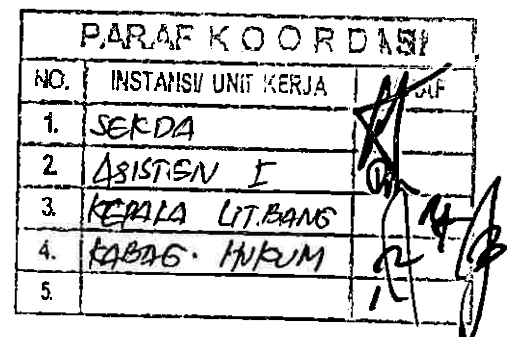 PARAF KOORDINASI
NO. INSTANSI/ UNIT KERJA PARAF
1. SEKDA
2 ASISTEN I
3. KEPALA LIT.BANG
4. KABAG. HUKUM
5.